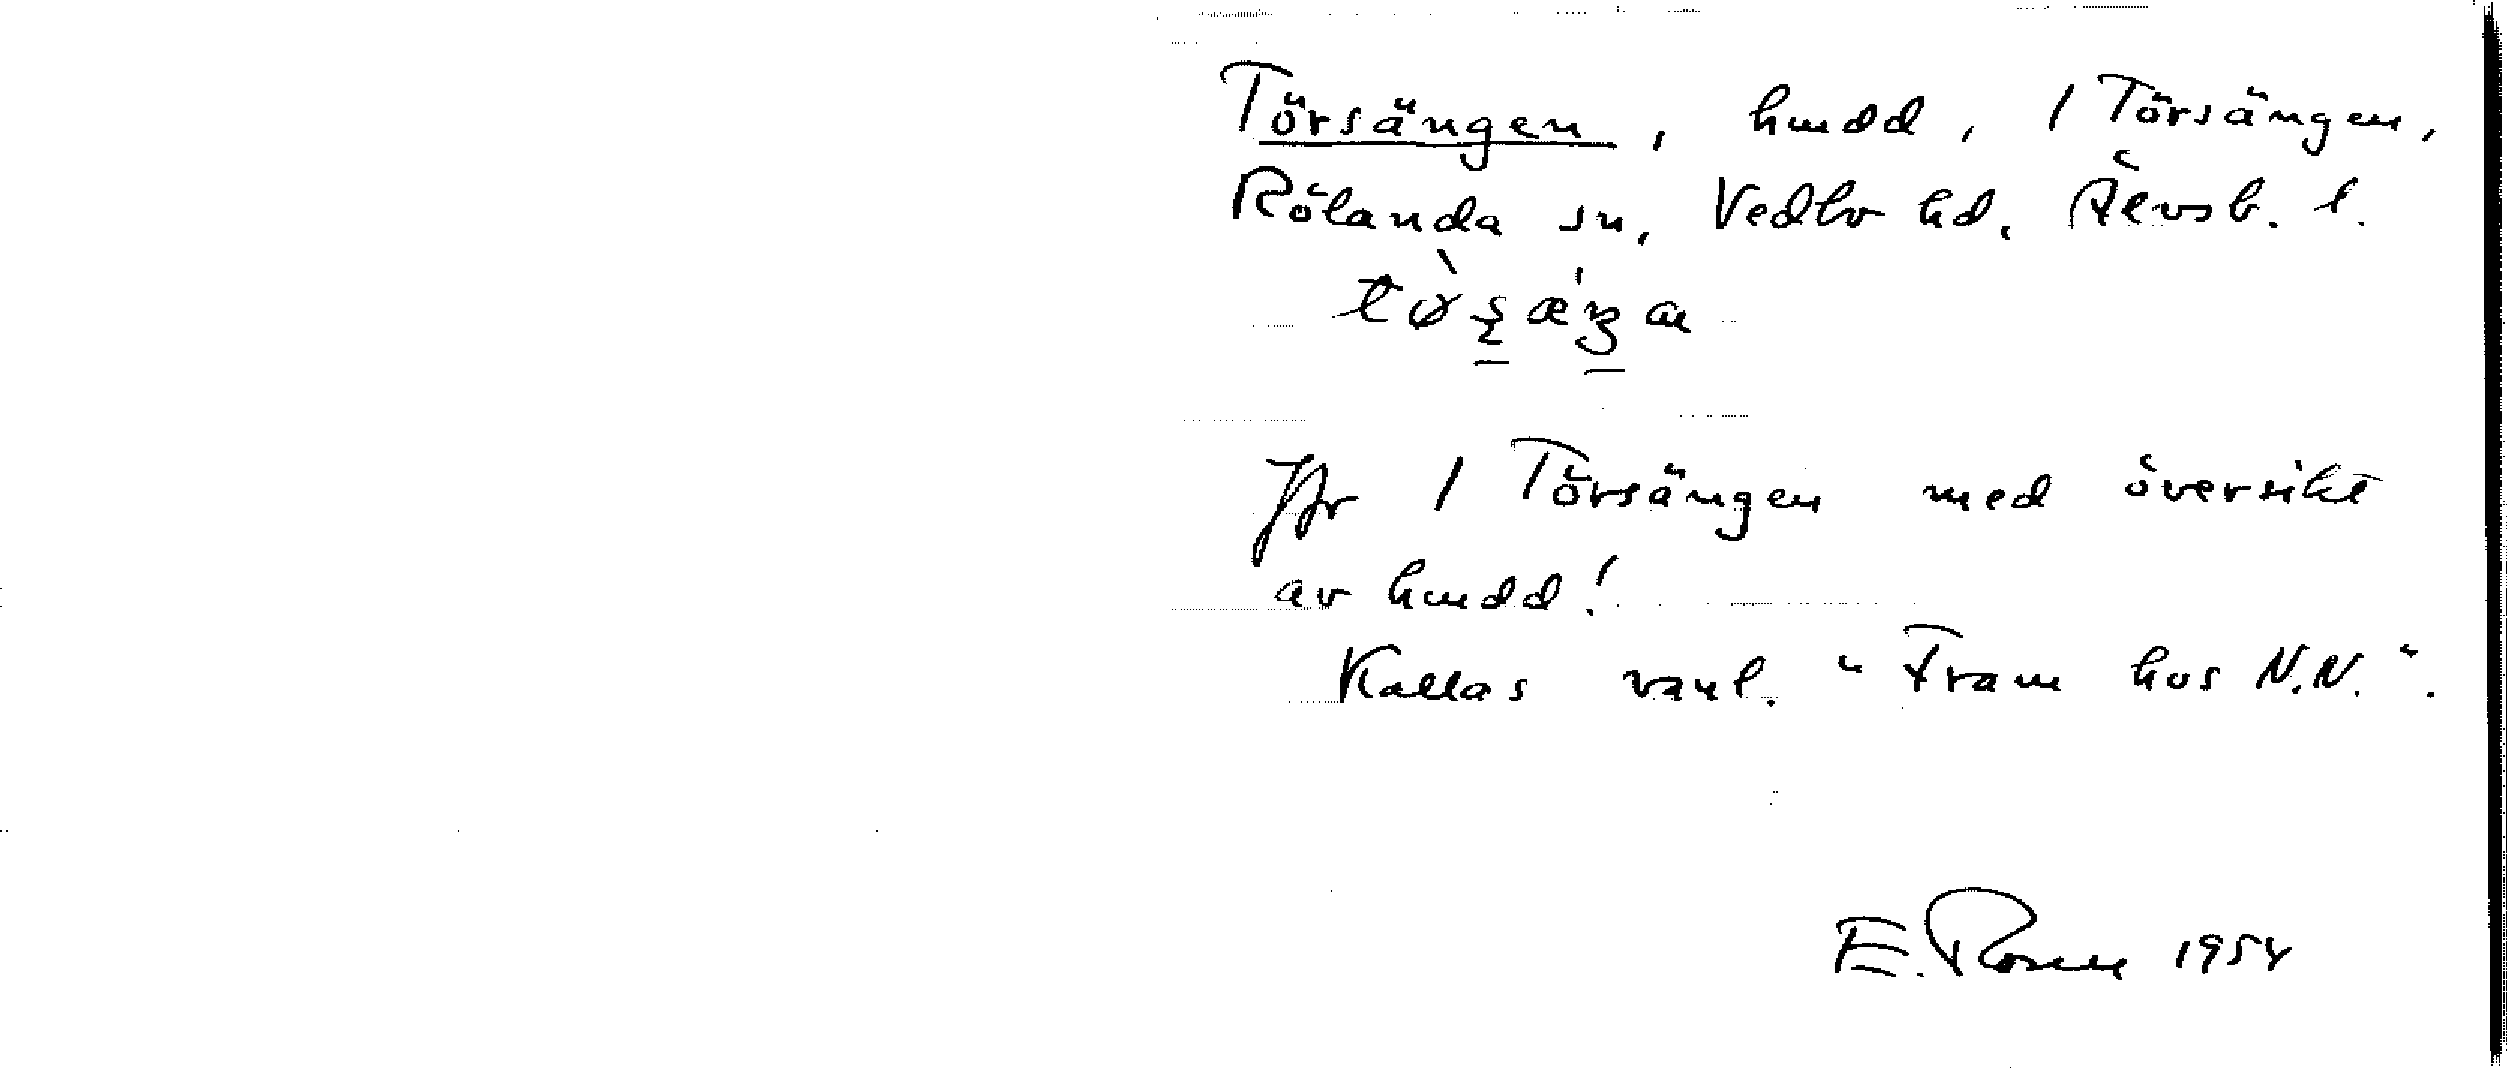 Törsängen, hmdd, 1 Törsängen,
Rölanda sn, Vedbo hd, Älvsb. l.
Jfr 1 Törsängen med översikt
av hmdd!
Kallas vanl. "Fram hos N.N.".
E. Rosell 1954